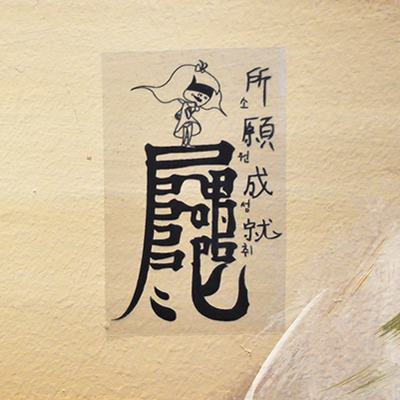 所願成就
소원성취